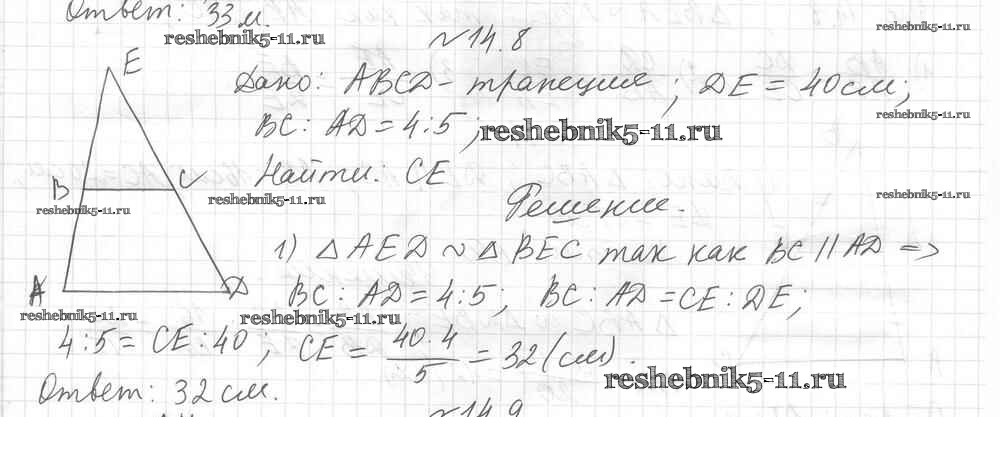 Ответ: 33 м.
reshebnik5-11.ru
reshebnik5-11.ru
№14.8
E
Дано: ABCD - трапеция; DE = 40 см;
reshebnik5-11.ru
BC : AD = 4:5;
reshebnik5-11.ru
Найти: CE
B
C
reshebnik5-11.ru
reshebnik5-11.ru
reshebnik5-11.ru
Решение.
1) △ AED ~ △ BEC так как BC || AD =>
A
D
BC : AD = 4:5; BC : AD = CE : DE;
reshebnik5-11.ru
reshebnik5-11.ru
4:5 = CE : 40; CE = 40·4 / 5 = 32 (см).
reshebnik5-11.ru
Ответ: 32 см.
№14.9